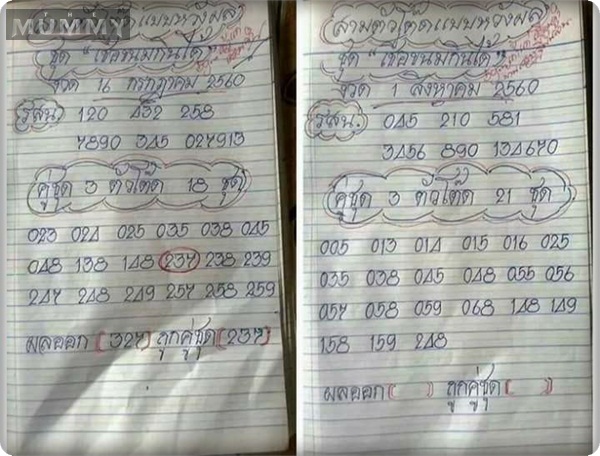 MUMMY
สามตัวโต๊ดแบบหวังผล
ชุด "เชื่อขนมกินได้"
งวด 16 กรกฎาคม 2560
รูสน. 120 432 258
7890 345 027913
คู่ชุด 3 ตัวโต๊ด 18 ชุด
023 024 025 035 038 045
048 138 148 237 238 239
247 248 249 257 258 259
ผลออก (327) ถูกคู่ชุด (237)
สามตัวโต๊ดแบบหวังผล
ชุด "เชื่อขนมกินได้"
งวด 1 สิงหาคม 2560
รูสน. 045 210 581
3456 890 134670
คู่ชุด 3 ตัวโต๊ด 21 ชุด
005 013 014 015 016 025
035 038 045 048 055 056
057 058 059 068 148 149
158 159 248
ผลออก ( ) ถูกคู่ชุด ( )